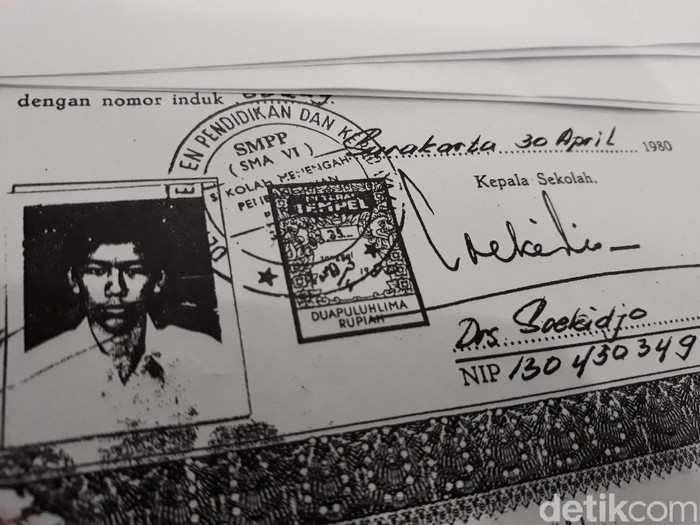 dengan nomor induk
EN PENDIDIKAN DAN KE
SMPP
(SMA VI)
Surakarta 30 April 1980
Kepala Sekolah,
METERAI
TEMPEL
DUAPULUHLIMA
RUPIAH
Drs. Soekidjo
NIP 130430349
detikcom